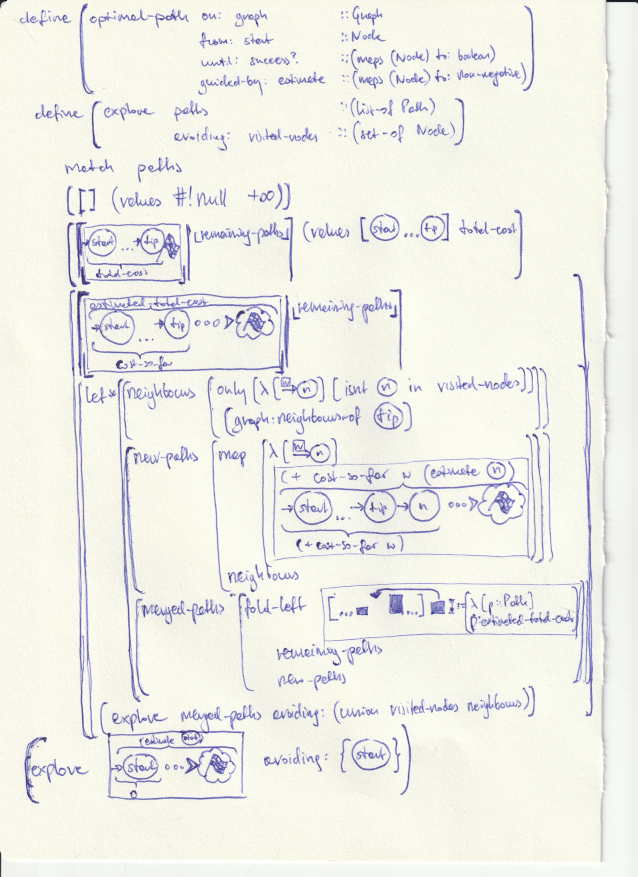 define (optimal-path on: graph ::Graph
from: start ::Node
until: success? ::(maps (Node) to: boolean)
guided-by: estimate ::(maps (Node) to: non-negative))
define (explore paths ::(list-of Path)
avoiding: visited-nodes ::(set-of Node))
match paths
[[] (values #!null +∞)]
[[ → start ... → tip | remaining-paths] (values [start ... tip] total-cost]
total-cost
estimated-total-cost
[[ → start ... → tip ooo | remaining-paths]
cost-so-far
(let* [[neighbours (only [λ [w → n] (isnt n in visited-nodes)]
(graph:neighbours-of tip)
[new-paths (map [λ [w → n]
(+ cost-so-far w (estimate n))
→ start ... → tip → n ooo
(+ cost-so-far w)
neighbours
[merged-paths (fold-left [... ...] := [λ [p::Path]
p:estimated-total-cost
remaining-paths
new-paths
(explore merged-paths avoiding: (union visited-nodes neighbours))]
(estimate start)
(explore → start ooo avoiding: {start})
0